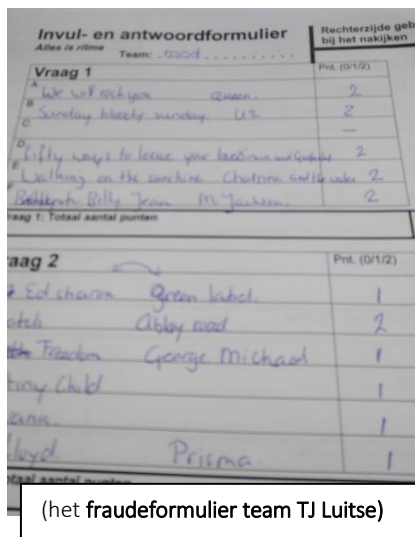 Invul- en antwoordformulier
Alles is ritme Team: rood
Rechterzijde geb
bij het nakijken
Vraag 1 Pnt. (0/1/2)
A We will rock you Queen 2
B Sunday bloody sunday U2 2
C –
D Fifty ways to leave your 2
E Walking on the sunchine and the 2
Billy Jean M. Jackson 2
raag 1: Totaal aantal punten
aag 2 Pnt. (0/1/2)
Ed sharen Green label. 1
Abby road 2
Freedom George Michael 1
tiny Child 1
1
lloyd. Prisma. 1
otaal aantal punten
(het fraudeformulier team TJ Luitse)